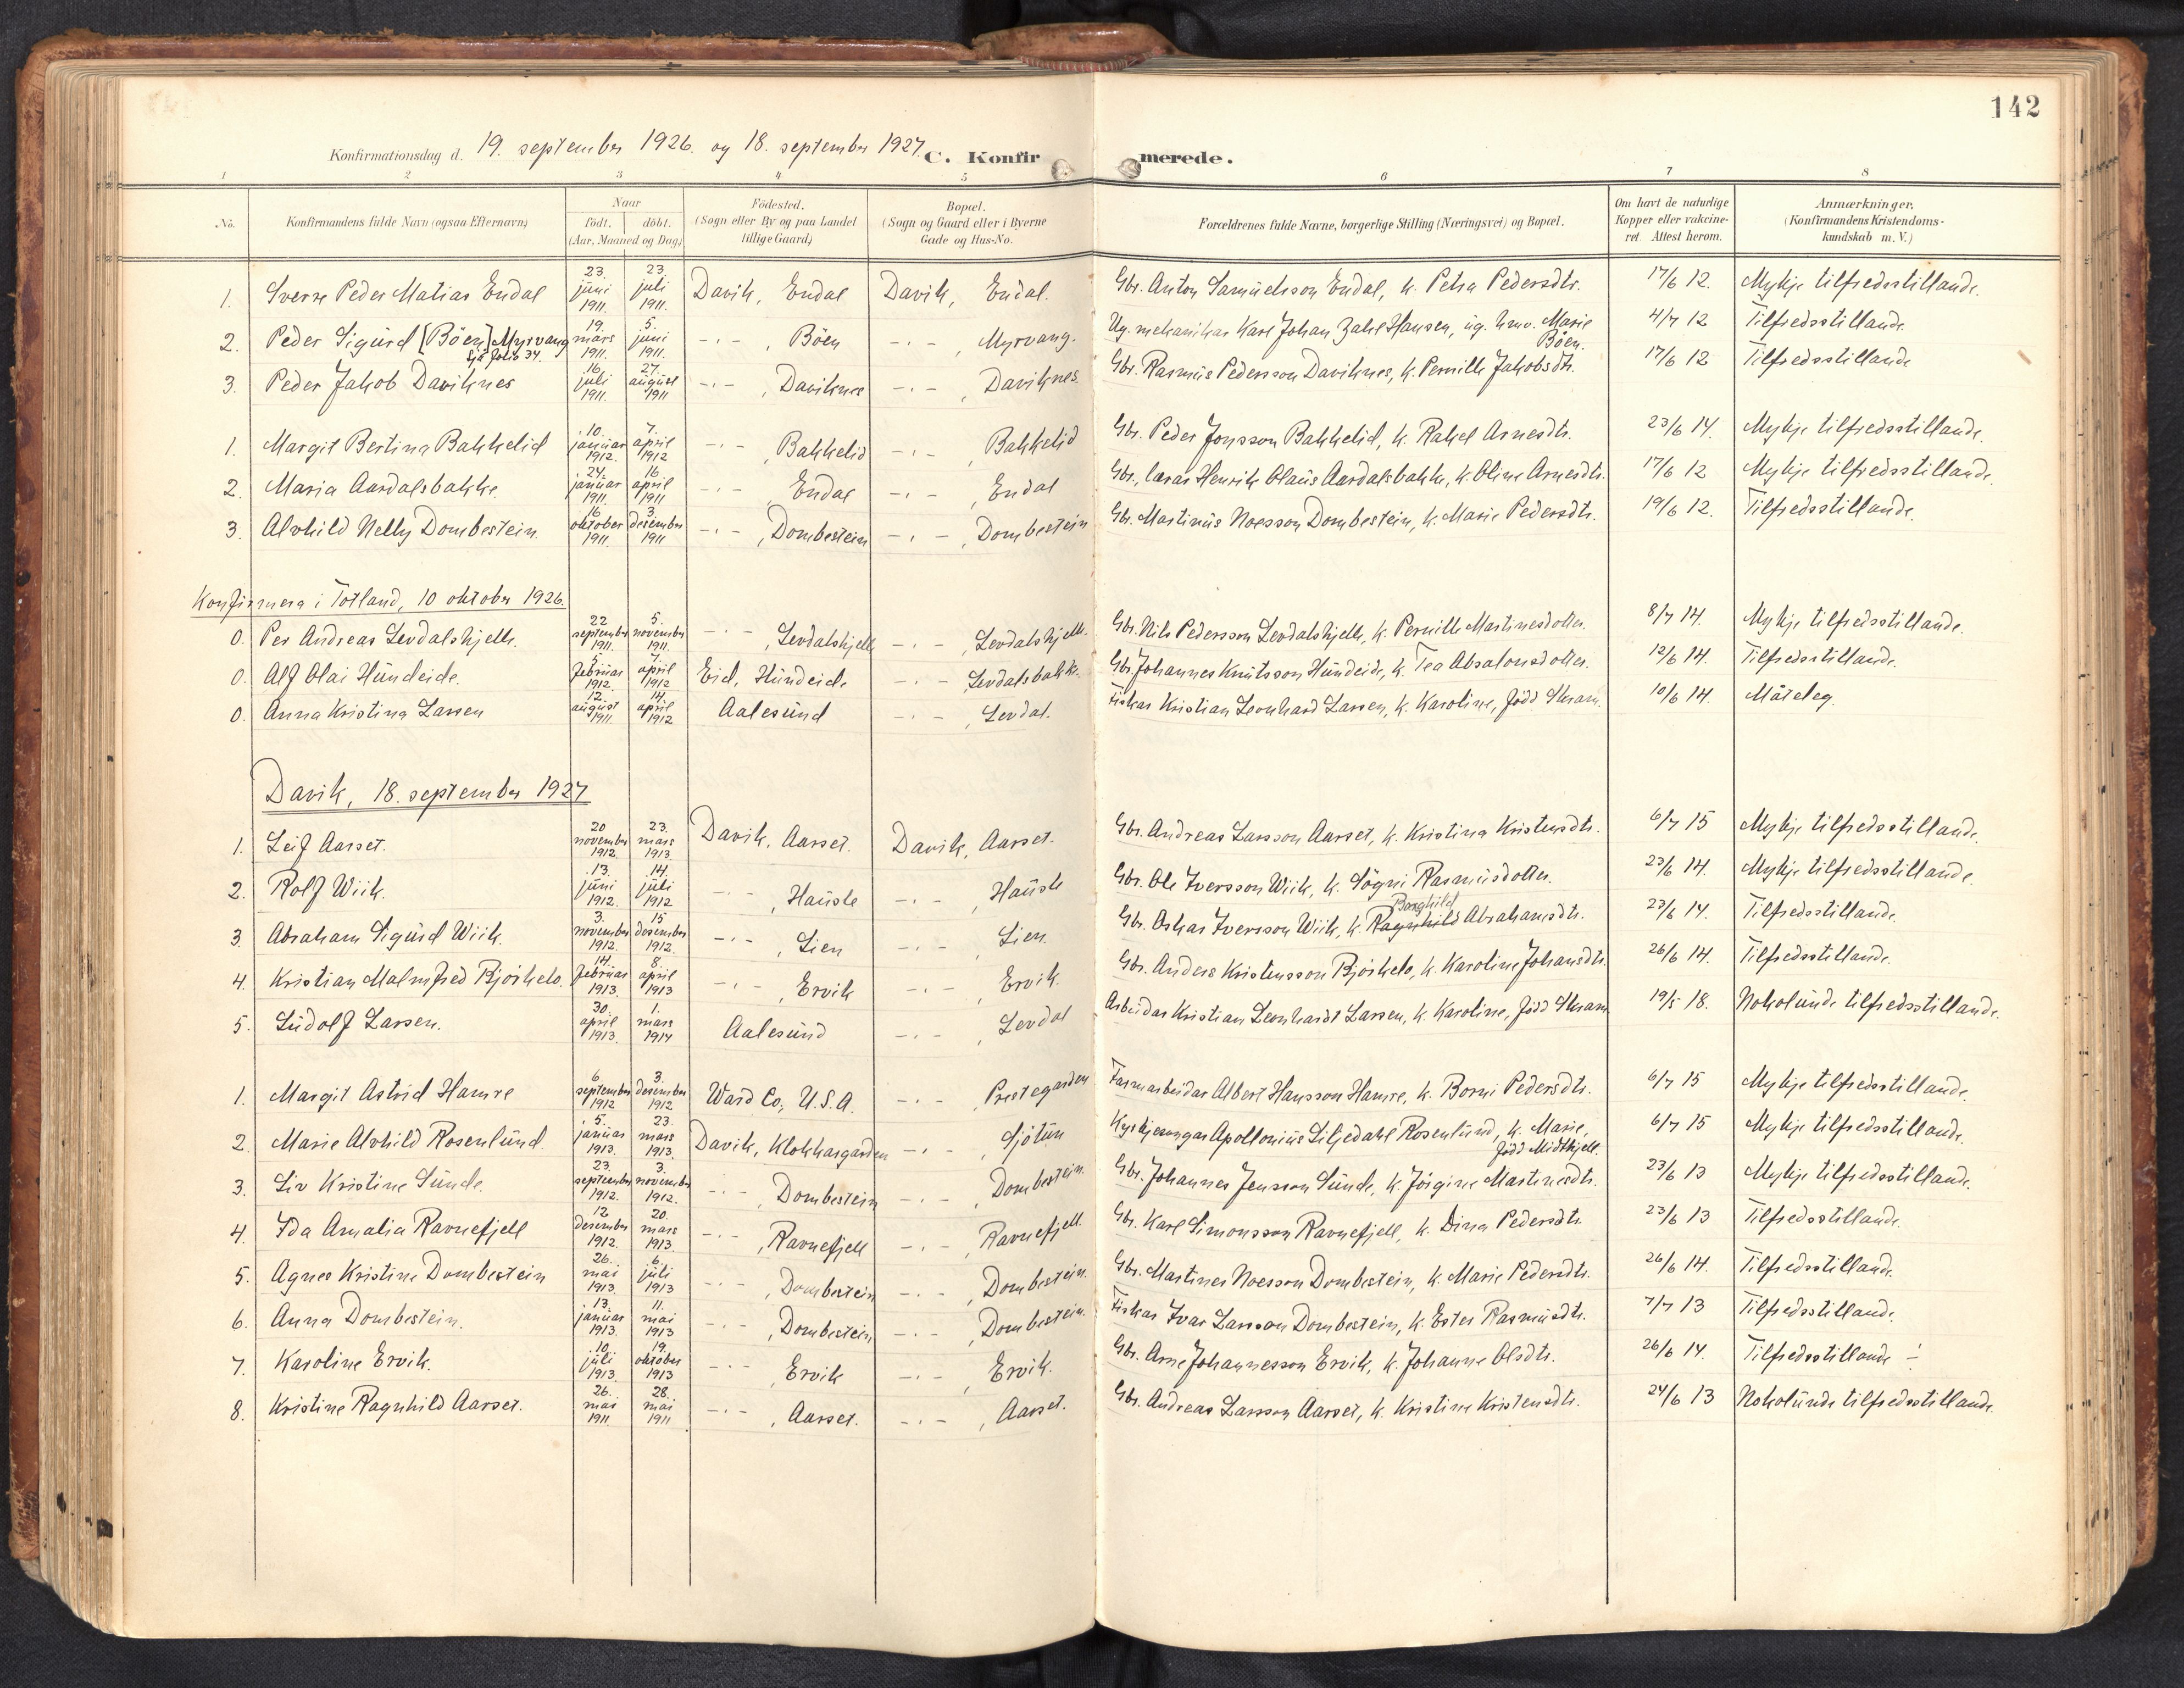 142
Konfirmationsdag d. 19. september 1926. og 18. september 1927. C. Konfirmerede.
1 2 3 4 5 6 7 8
No. Konfirmandens fulde Navn (ogsaa Efternavn) Naar født. døbt. (Aar, Maaned og Dag) Fødested. (Sogn eller By og paa Landet tillige Gaard) Bopæl. (Sogn og Gaard eller i Byerne Gade og Hus-No. Forældrenes fulde Navne, borgerlige Stilling (Næringsvei) og Bopæl. Om havt de naturlige Kopper eller vakcineret. Attest herom. Anmærkninger. (Konfirmandens Kristendomskundskab m. V.)
1. Sverre Peder Matias Endal 23. juni 1911. 23. juli 1911. Davik, Endal Davik, Endal. Gbr. Anton Samuelsson Endal, k. Petra Pedersdtr. 17/6 12. Mykje tilfredsstillande.
2. Peder Sigurd [Böen] Myrvang sjå folio 34. 19. mars 1911. 5. juni 1911. -"- , Böen -"- , Myrvang. Ug. mekanikar Karl Johan Zahl Hansen, ug. hmv. Marie Böen. 4/7 12 Tilfredsstillande.
3. Peder Jakob Daviknes 16. juli 1911. 27. august 1911 -"- , Daviknes -"- , Daviknes. Gbr. Rasmus Pedersson Daviknes, k. Pernille Jakobsdtr. 17/6 12 Tilfredsstillande
1. Margit Bertina Bakkelid 10. januar 1912. 7. april 1912 -"- , Bakkelid -"- , Bakkelid Gbr. Peder Jonsson Bakkelid, k. Rakel Arnesdtr. 23/6 14. Mykje tilfredsstillande.
2. Maria Aardalsbakke. 24. januar 1911. 16. april 1911 -"- , Endal -"- , Endal Gbr., lærar Henrik Olaus Aardalsbakke, k. Oline Arnesdtr. 17/6 12 Mykje tilfredsstillande.
3. Alvhild Nelly Dombestein. 16 oktober 1911. 3. desember 1911 -"- , Dombestein -"- , Dombestein Gbr. Martinus Noesson Dombestein, k. Marie Pedersdtr. 19/6 12. Tilfredsstillande.
Konfirmera i Totland, 10 oktober 1926.
0. Per Andreas Levdalskjelle. 22 september 1911. 5. november 1911. -"- , Levdalskjelle -"- , Levdalskjelle. Gbr. Nils Pedersson Levdalskjelle, k. Pernille Martinesdotter. 8/7 14. Mykje tilfredsstillande.
0. Alf Olai Hundeide. 5. februar 1912. 7. april 1912 Eid, Hundeide -"- , Levdalsbakk. Gbr. Johannes Knutsson Hundeide, k. Tea Absalonsdotter. 12/6 14. Tilfredsstillande.
0. Anna Kristina Larsen 12 august 1911. 14. april 1912 Aalesund -"- , Levdal. Fiskar Kristian Leonhard Larsen, k. Karoline, född Skram. 10/6 14. Måteleg.
Davik, 18. september 1927
1. Leif Aarset. 20 november 1912. 23. mars 1913. Davik, Aarset. Davik, Aarset. Gbr. Andreas Larsson Aarset, k. Kristina Kristensdtr. 6/7 15 Mykje tilfredsstillande.
2. Rolf Wiik. 13. juni 1912. 14. juli 1912 -"- , Hauste -"- , Hauste Gbr. Ole Iversson Wiik, k. Sögni Rasmusdotter. 23/6 14. Mykje tilfredsstillande.
3. Abraham Sigurd Wiik. 3. november 1912. 15 desember 1912 -"- , Lien -"- , Lien. Gbr. Oskar Iversson Wiik, k. Ragnhild Borghild Abrahamsdtr. 23/6 14. Tilfredsstillande.
4. Kristian Malmfred Björkelo. 14. februar 1913. 8. april 1913 -"- , Ervik -"- , Ervik. Gbr. Anders Kristensson Bjørkelo, k. Karoline Johansdtr. 26/6 14. Tilfredsstillande.
5. Ludolf Larsen. 30. april 1913. 1. mars 1914 Aalesund -"- , Levdal Arbeidar Kristian Leonhardt Larsen, k. Karoline, född Skram. 19/5 18. Nokolunde tilfredsstillande.
1. Margit Astrid Hamre 6 september 1912 3. desember 1912 Ward Co., U.S.A. -"- , Prestegarden Farmarbeidar Albert Hansson Hamre, k. Borni Pedersdtr. 6/7 15 Mykje tilfredsstillande.
2. Marie Alvhild Rosenlund. 5. januar 1913. 23. mars 1913. Davik, Klokkargarden -"- , Sjötun Kyrkjesongar Apollonius Liljedahl Rosenlund, k. Marie, född Midtkjell. 6/7 15 Mykje tilfredsstillande.
3. Liv Kristine Sunde. 23. september 1912. 3. november 1912. -"- , Dombestein -"- , Dombestein. Gbr. Johannes Jensson Sunde, k. Jörgine Martinesdtr. 23/6 13 Mykje tilfredsstillande.
4. Ida Amalia Ravnefjell 12 desember 1912. 20. mars 1913. -"- , Ravnefjell -"- , Ravnefjell. Gbr. Karl Simonsson Ravnefjell, k. Dina Pedersdtr. 23/6 13 Tilfredsstillande.
5. Agnes Kristine Dombestein 26. mai 1913. 6. juli 1913 -"- , Dombestein -"- , Dombestein. Gbr. Martines Noesson Dombestein, k. Marie Pedersdtr. 26/6 14. Tilfredsstillande.
6. Anna Dombestein. 13. januar 1913. 11. mai 1913 -"- , Dombestein -"- , Dombestein. Fiskar Ivar Larsson Dombestein, k. Ester Rasmusdtr. 7/7 13 Tilfredsstillande.
7. Karoline Ervik. 10. juli 1913. 19. oktober 1913 -"- , Ervik -"- , Ervik. Gbr. Arne Johannesson Ervik, k. Johanne Olsdtr. 26/6 14. Tilfredsstillande ÷
8. Kristine Ragnhild Aarset. 26. mai 1911 28. mai 1911 -"- , Aarset. -"- , Aarset. Gbr. Andreas Larsson Aarset, k. Kristine Kristensdtr. 24/6 13 Nokolunde tilfredsstillande.